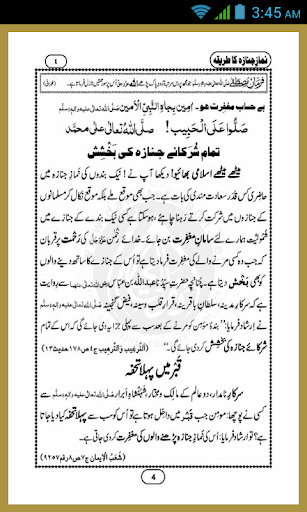 3:45 AM
نماز جنازہ کا طریقہ
٤
بے حساب مغفرت ہو۔ اٰمِین بِجَاہِ النَّبِیِّ الْاَمین صلَّی اللہ تعالٰی علیہ واٰلہٖ وسلَّم
صَلُّوا عَلَی الْحَبِیب! صلَّی اللہُ تعالٰی علٰی محمَّد
تمام شُرَکائے جنازہ کی بَخْشِش
میٹھے میٹھے اسلامی بھائیو! دیکھا آپ نے! نیک بندوں کی نمازِ جنازہ میں
حاضِری کس قَدَر سعادت مندی کی بات ہے۔ جب بھی موقع ملے بلکہ موقع نکال کر مسلمانوں
کے جنازوں میں شرکت کرتے رہنا چاہئے، ہوسکتا ہے کسی نیک بندے کے جنازے میں
شُمُولیّت ہمارے لئے سامانِ مغفِرت بن جائے۔ خدائے رَحْمٰن عَزَّوَجَلَّ کی رَحْمت پر قربان
کہ جب وہ کسی مرنے والے کی مغفرت فرما دیتا ہے تو اُس کے جنازے کا ساتھ دینے والوں
کو بھی بخش دیتا ہے۔ چُنانچِہ حضرتِ سیِّدُنا عبداللہ بن عبّاس رضی اللہ تعالٰی عنہما سے رِوایت
ہے کہ سرکارِ مدینہ، سلطانِ باقرینہ، قرارِ قلب وسینہ، فیض گنجینہ صلَّی اللہ تعالٰی علیہ واٰلہٖ وسلَّم
نے ارشاد فرمایا: ”بندۂ مؤمن کو مرنے کے بعد سب سے پہلی جزا یہ دی جائے گی کہ اس کے تمام
شرکائے جنازہ کی بخشش کر دی جائے گی۔“ (اَلتَّرغِیب وَالتَّرہِیب ج٤ ص١٧٨ حدیث١٣)
قَبْر میں پہلا تحفہ
سرکارِ نامدار، دو عالم کے مالِک ومختار، شَہَنْشاہِ اَبرار صلَّی اللہ تعالٰی علیہ واٰلہٖ وسلَّم سے
کسی نے پوچھا: مومن جب قَبْر میں داخِل ہوتا ہے تو اُس کو سب سے پہلا تحفہ کیا دیا جاتا
ہے؟ تو ارشاد فرمایا: اُس کی نَمازِ جنازہ پڑھنے والوں کی مغفِرت کر دی جاتی ہے۔
(شُعَبُ الْاِیمان ج٧ ص٨ رقم٩٢٥٧)
4